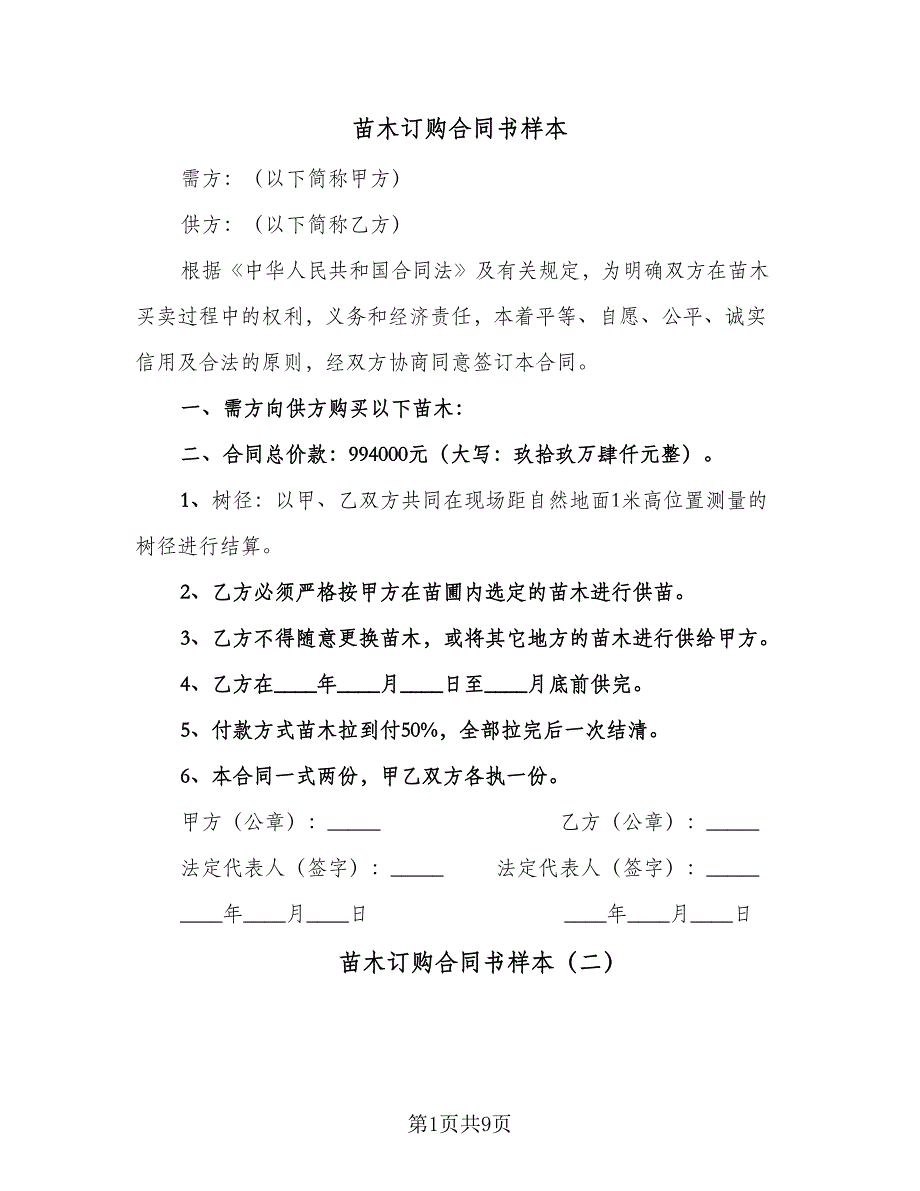 苗木订购合同书样本
需方：（以下简称甲方）
供方：（以下简称乙方）
根据《中华人民共和国合同法》及有关规定，为明确双方在苗木
买卖过程中的权利，义务和经济责任，本着平等、自愿、公平、诚实
信用及合法的原则，经双方协商同意签订本合同。
一、需方向供方购买以下苗木：
二、合同总价款：994000元（大写：玖拾玖万肆仟元整）。
1、树径：以甲、乙双方共同在现场距自然地面1米高位置测量的
树径进行结算。
2、乙方必须严格按甲方在苗圃内选定的苗木进行供苗。
3、乙方不得随意更换苗木，或将其它地方的苗木进行供给甲方。
4、乙方在____年____月____日至____月底前供完。
5、付款方式苗木拉到付50%，全部拉完后一次结清。
6、本合同一式两份，甲乙双方各执一份。
甲方（公章）：_____ 乙方（公章）：_____
法定代表人（签字）：_____ 法定代表人（签字）：_____
____年____月____日 ____年____月____日
苗木订购合同书样本（二）
第1页共9页